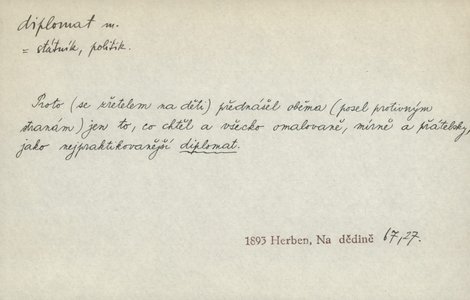 diplomat m.
= státník, politik.
Proto (se zřetelem na děti) přednášel oběma (posel protivným
stranám) jen to, co chtěl a všecko omalovaně, mírně a přátelsky,
jako nejpraktikovanější diplomat.
1893 Herben, Na dědině 67,27.